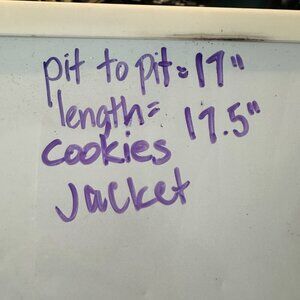 pit to pit = 17"
length = 17.5"
cookies
Jacket